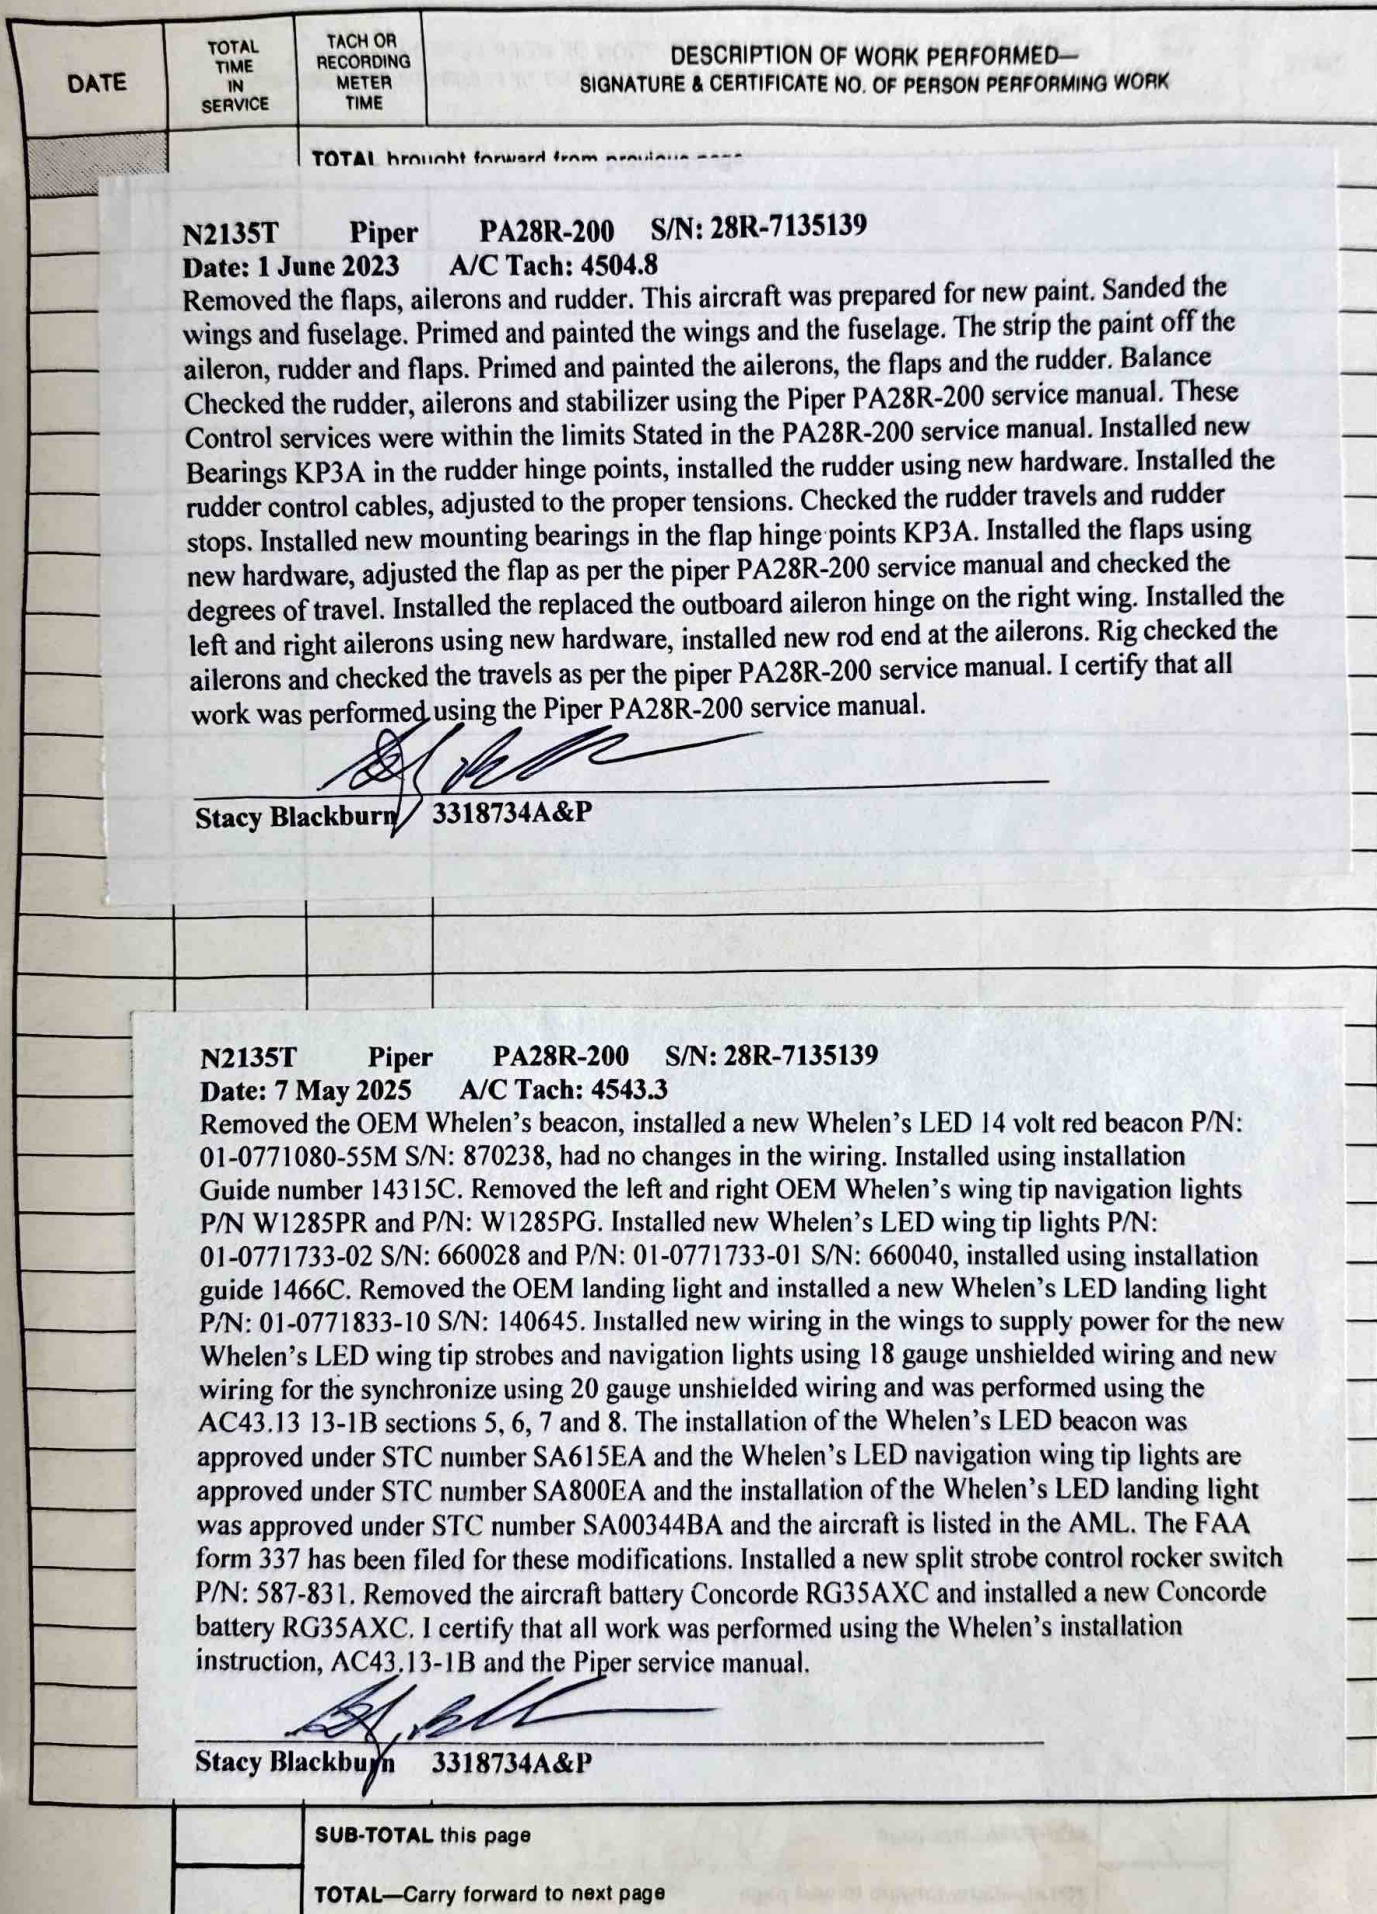 DATE
TOTAL
TIME
IN
SERVICE
TACH OR
RECORDING
METER
TIME
DESCRIPTION OF WORK PERFORMED—
SIGNATURE & CERTIFICATE NO. OF PERSON PERFORMING WORK
TOTAL brought forward from previous page
N2135T Piper PA28R-200 S/N: 28R-7135139
Date: 1 June 2023 A/C Tach: 4504.8
Removed the flaps, ailerons and rudder. This aircraft was prepared for new paint. Sanded the
wings and fuselage. Primed and painted the wings and the fuselage. The strip the paint off the
aileron, rudder and flaps. Primed and painted the ailerons, the flaps and the rudder. Balance
Checked the rudder, ailerons and stabilizer using the Piper PA28R-200 service manual. These
Control services were within the limits Stated in the PA28R-200 service manual. Installed new
Bearings KP3A in the rudder hinge points, installed the rudder using new hardware. Installed the
rudder control cables, adjusted to the proper tensions. Checked the rudder travels and rudder
stops. Installed new mounting bearings in the flap hinge points KP3A. Installed the flaps using
new hardware, adjusted the flap as per the piper PA28R-200 service manual and checked the
degrees of travel. Installed the replaced the outboard aileron hinge on the right wing. Installed the
left and right ailerons using new hardware, installed new rod end at the ailerons. Rig checked the
ailerons and checked the travels as per the piper PA28R-200 service manual. I certify that all
work was performed using the Piper PA28R-200 service manual.
Stacy Blackburn 3318734A&P
N2135T Piper PA28R-200 S/N: 28R-7135139
Date: 7 May 2025 A/C Tach: 4543.3
Removed the OEM Whelen's beacon, installed a new Whelen's LED 14 volt red beacon P/N:
01-0771080-55M S/N: 870238, had no changes in the wiring. Installed using installation
Guide number 14315C. Removed the left and right OEM Whelen's wing tip navigation lights
P/N W1285PR and P/N: W1285PG. Installed new Whelen's LED wing tip lights P/N:
01-0771733-02 S/N: 660028 and P/N: 01-0771733-01 S/N: 660040, installed using installation
guide 1466C. Removed the OEM landing light and installed a new Whelen's LED landing light
P/N: 01-0771833-10 S/N: 140645. Installed new wiring in the wings to supply power for the new
Whelen's LED wing tip strobes and navigation lights using 18 gauge unshielded wiring and new
wiring for the synchronize using 20 gauge unshielded wiring and was performed using the
AC43.13 13-1B sections 5, 6, 7 and 8. The installation of the Whelen's LED beacon was
approved under STC number SA615EA and the Whelen's LED navigation wing tip lights are
approved under STC number SA800EA and the installation of the Whelen's LED landing light
was approved under STC number SA00344BA and the aircraft is listed in the AML. The FAA
form 337 has been filed for these modifications. Installed a new split strobe control rocker switch
P/N: 587-831. Removed the aircraft battery Concorde RG35AXC and installed a new Concorde
battery RG35AXC. I certify that all work was performed using the Whelen's installation
instruction, AC43.13-1B and the Piper service manual.
Stacy Blackburn 3318734A&P
SUB-TOTAL this page
TOTAL—Carry forward to next page